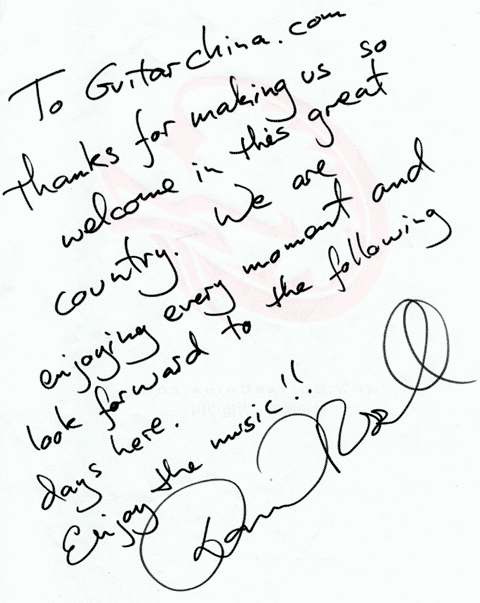 To Guitarchina.com
thanks for making us so
welcome in this great
country. We are
enjoying every moment and
look forward to the following
days here.
Enjoy the music!!